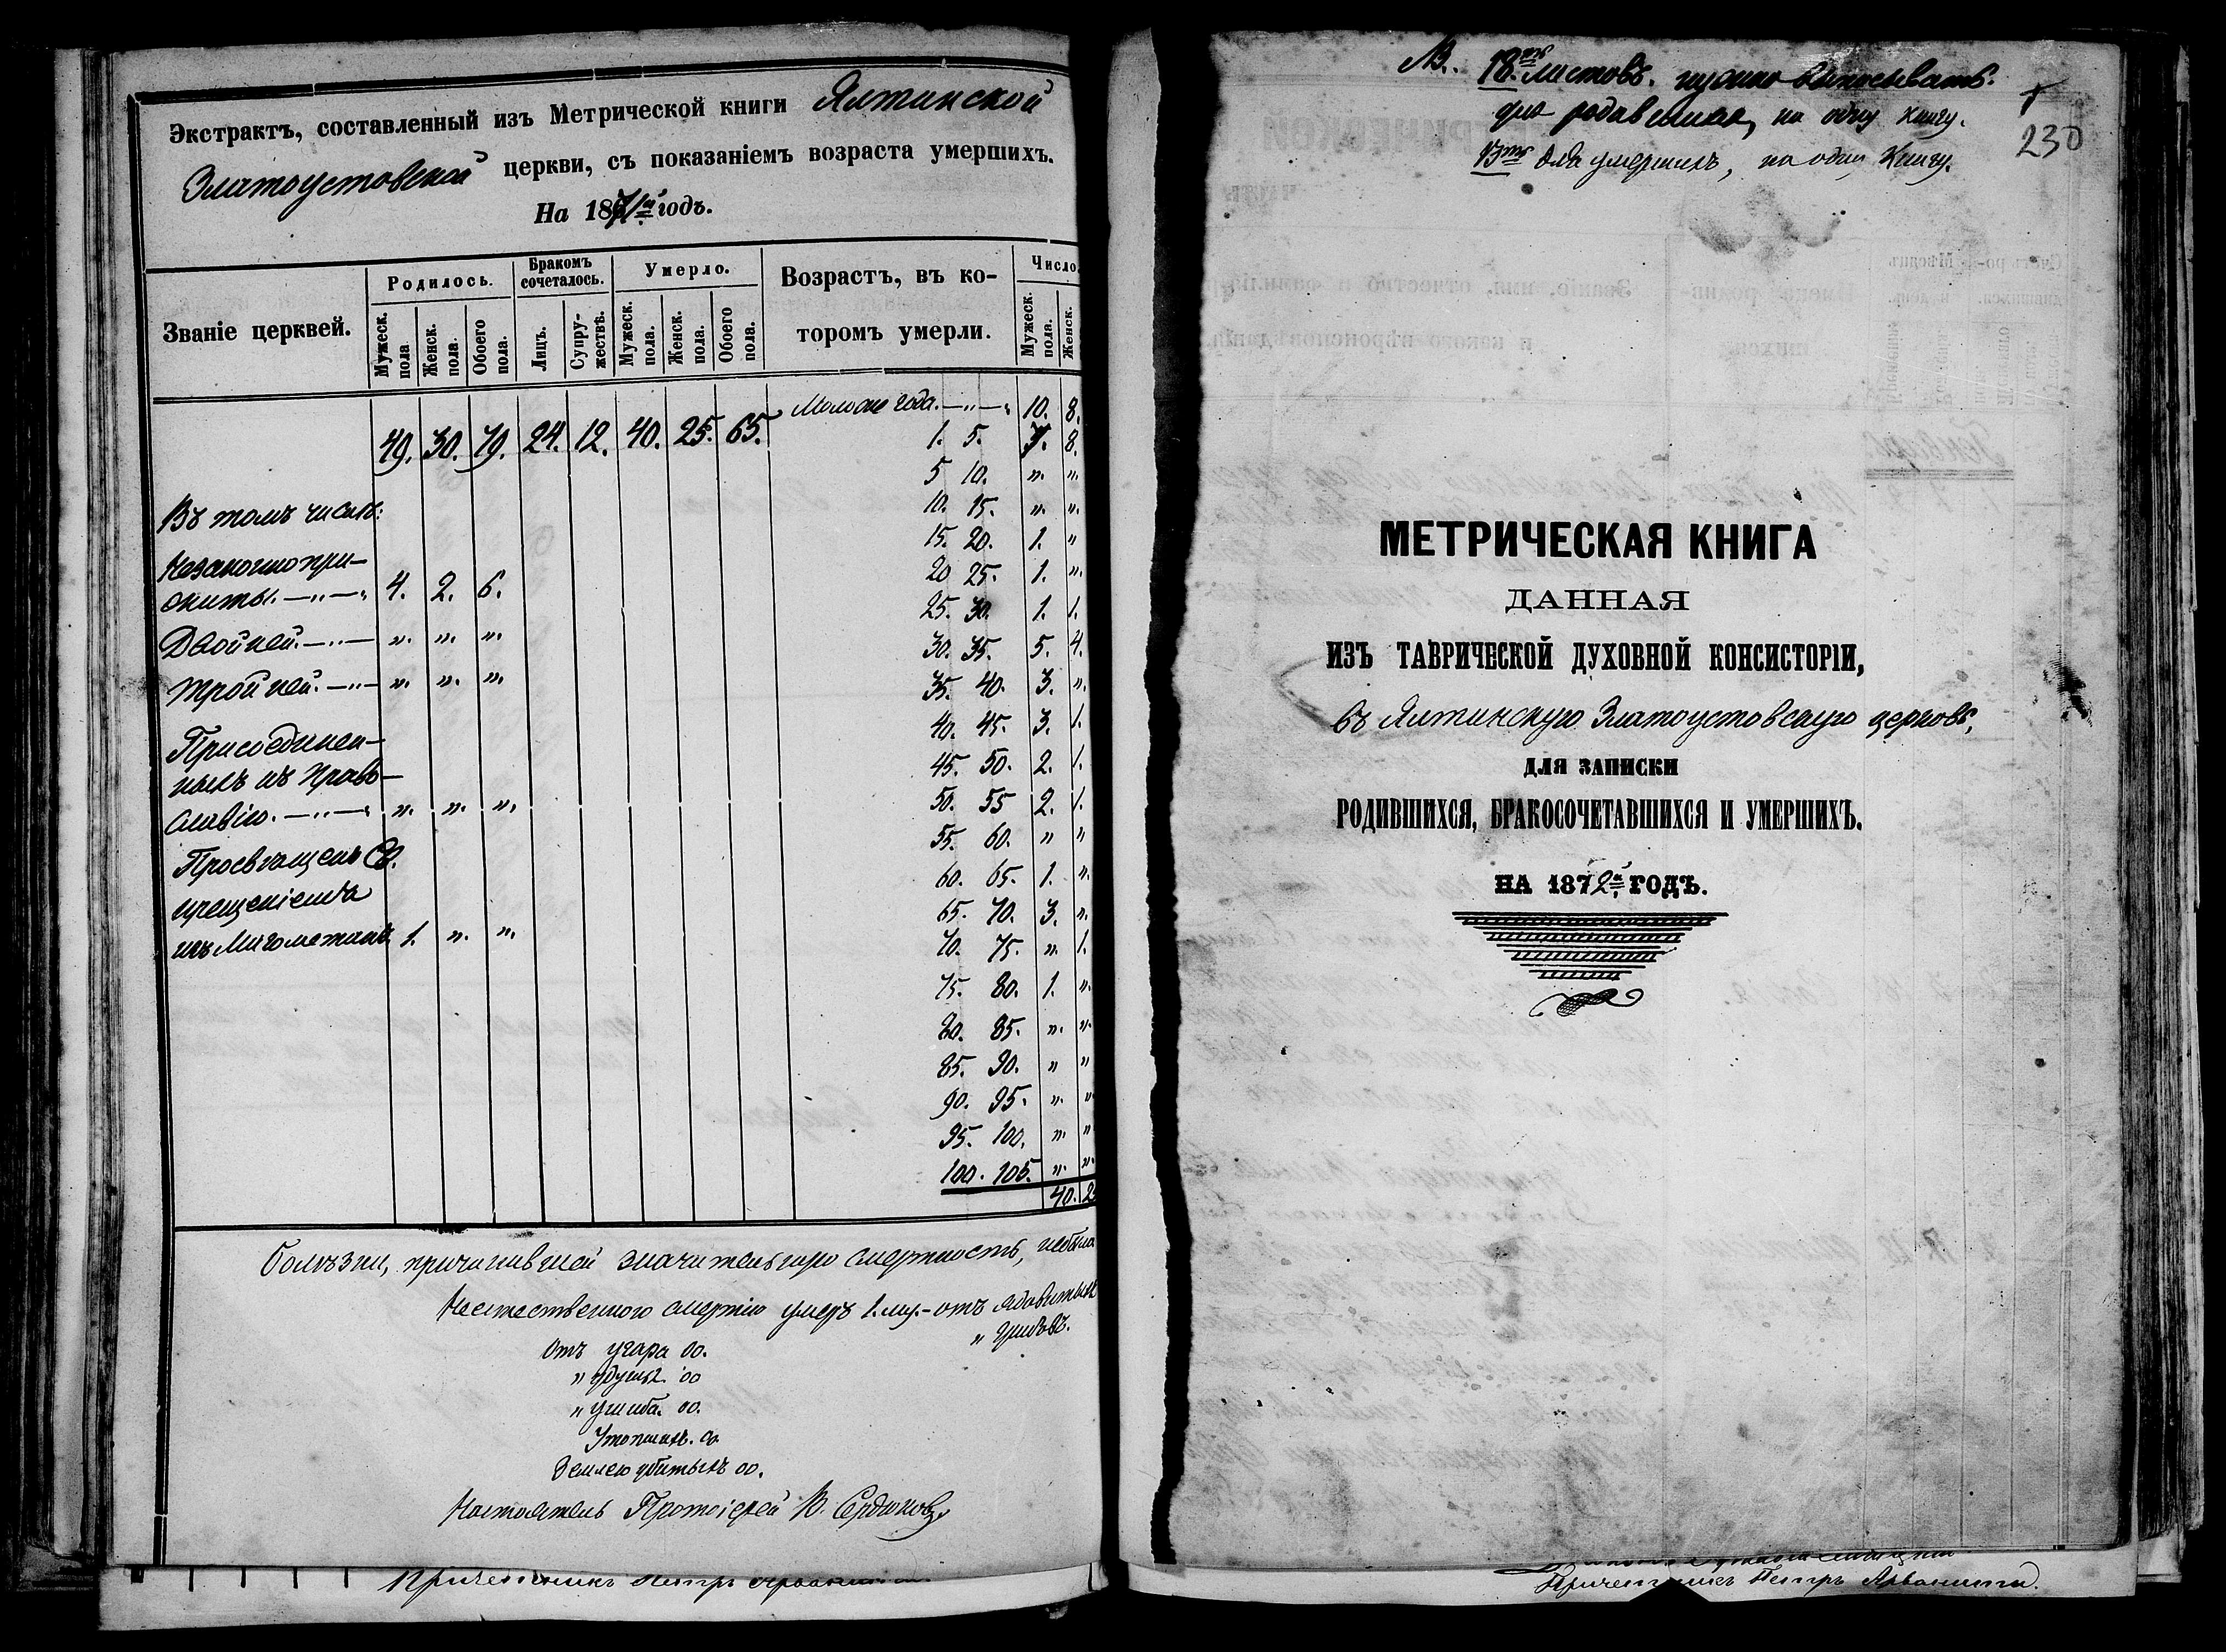 Экстрактъ, составленный изъ Метрической книги Ялтинской
Златоустовской церкви, съ показаніемъ возраста умершихъ.
На 1871й годъ.
Званіе церквей.
Родилось.
Бракомъ сочеталось.
Умерло.
Возрастъ, въ ко-
торомъ умерли.
Число
Мужеск. пола
Женск. пола.
Обоего пола.
Лицъ.
Супру-жествъ.
Мужеск. пола.
Женск. пола.
Обоего пола.
Мужеск. пола.
Женск.
49. 30. 79. 24. 12. 40. 25. 65.
Моложе года. —„— 10. 8.
1. 5. 7. 8.
5 10. „. „.
10. 15. „. „.
15. 20. 1. „
20 25. 1. „.
25. 30. 1. 1.
30. 35. 5. 4.
35. 40. 3. „.
40. 45. 3. 1.
45. 50. 2. 1.
50. 55 2. 1.
55. 60. „ „
60. 65. 1. „.
65. 70. 3. „.
70. 75. „. 1.
75. 80. 1. „.
80. 85. „. „.
85. 90. „ „
90. 95. „. „
95. 100. „. „
100. 105. „. „.
40. 25
Въ томъ числѣ:
Незаконно при-
житы. —„— 4. 2. 6.
Двойней. —„— „. „. „.
Тройней. —„— „. „. „.
Присоединен-
ныхъ къ Право-
славію. —„— „. „. „.
Просвѣщенъ Св.
крещеніемъ
изъ Магометанъ 1. „. „.
Болѣзни, причинившей значительную смертность, небыло
Неестественною смертію умеръ 1. муж.- отъ ядовитыхъ
„ грибовъ.
Отъ угара 00.
„ 00
„ ушиба. 00.
Утопшихъ. 00
Землею убитыхъ 00.
Настоятель Протоіерей В. Сердюковъ
Причетникъ Петръ
NB. 18ть листовъ. нужно выписывать.
для родившихся, на одну книгу.
13ть для умершихъ, на одну Книгу.
230
МЕТРИЧЕСКАЯ КНИГА
ДАННАЯ
ИЗЪ ТАВРИЧЕСКОЙ ДУХОВНОЙ КОНСИСТОРІИ,
въ Ялтинскую Златоустовскую церковь,
ДЛЯ ЗАПИСКИ
РОДИВШИХСЯ, БРАКОСОЧЕТАВШИХСЯ И УМЕРШИХЪ.
НА 1872й ГОДЪ.
Причетникъ Петръ Арванити.